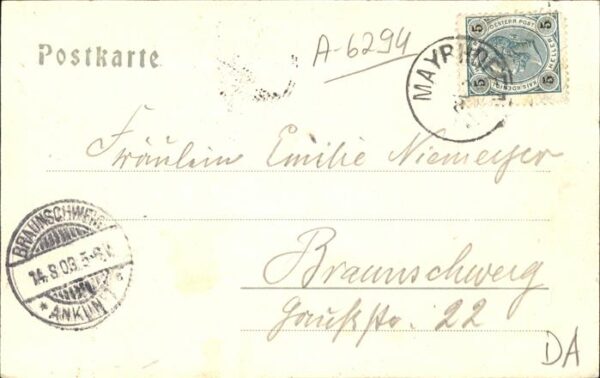 Postkarte
A-6294
5 5
OESTERR. POST
5 5
MAYRHOFEN
Fräulein Emilie Niemeyer
BRAUNSCHWEIG
14.8.03. 5-6 V.
* ANKUNFT *
Braunschweig
Gaußstr. 22
DA